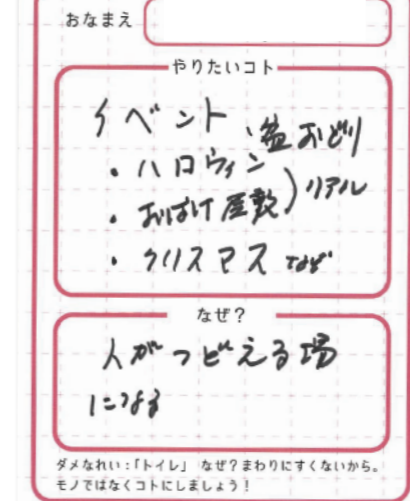 おなまえ
やりたいコト
イベント
・盆おどり
・ハロウィン
・おばけ屋敷 ) リアル
・クリスマス など
なぜ?
人がつどえる場
になる
ダメなれい:「トイレ」 なぜ?まわりにすくないから。
モノではなくコトにしましょう!